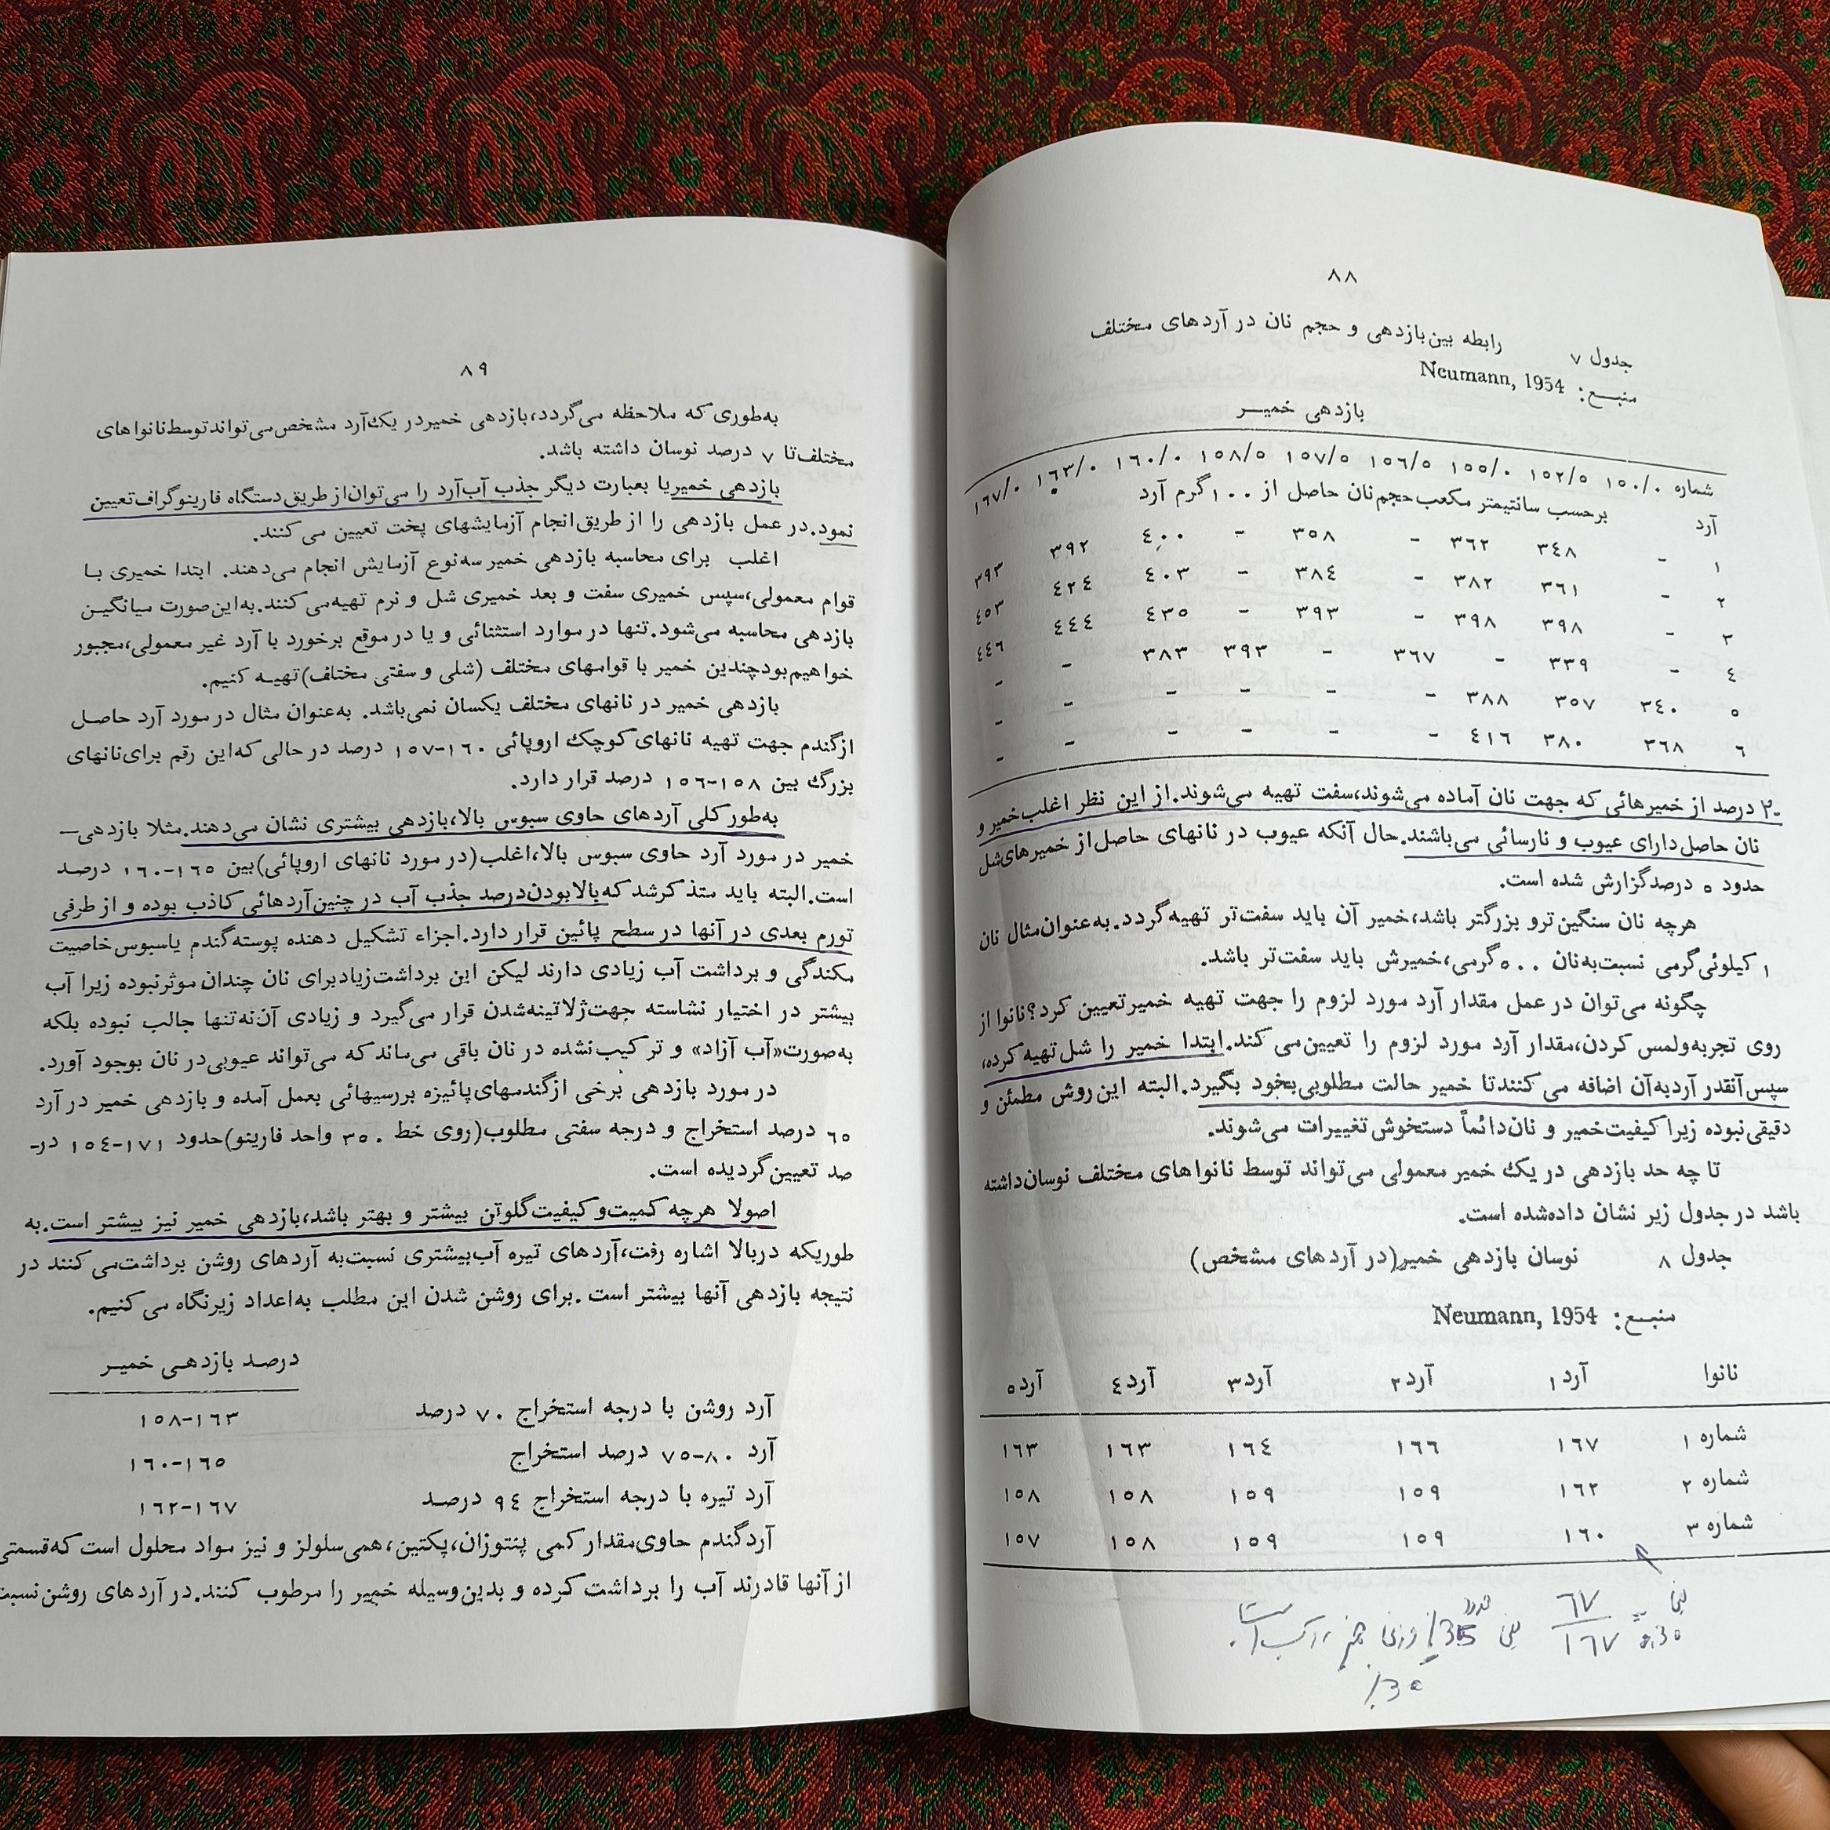 ۸۸
جدول ۷ رابطه بین‌بازدهی و حجم نان در آردهای مختلف
منبـع: Neumann, 1954
بازدهی خمیـر
شماره ۱۵۰/۰ ۱۵۲/۵ ۱۵۵/۰ ۱۵۶/۵ ۱۵۷/۵ ۱۵۸/۵ ۱۶۰/۰ ۱۶۳/۰ ۱۶۷/۰
آرد برحسب سانتیمتر مکعب‌حجم‌نان حاصل از ۱۰۰گرم آرد
۱ - ۳۴۸ ۳۶۲ - ۳۵۸ - ۴۰۰ ۳۹۲ ۳۹۳
۲ - ۳۶۱ ۳۸۲ - ۳۸۴ - ۴۰۳ ۴۲۴ ۴۵۳
۳ - ۳۹۸ ۳۹۸ - ۳۹۳ - ۴۳۵ ۴۴۴ ۴۴۶
۴ - ۳۳۹ - ۳۶۷ - ۳۹۳ ۳۸۳ - -
۵ ۳۴۰ ۳۵۷ ۳۸۸ - - - - - -
۶ ۳۶۸ ۳۸۰ ۴۱۶ - - - - - -
۲۰ درصد از خمیرهائی که جهت نان آماده می‌شوند،سفت تهیه می‌شوند.از این نظر اغلب‌خمیر و
نان حاصل‌دارای عیوب و نارسائی می‌باشند.حال آنکه عیوب در نانهای حاصل‌از خمیرهای‌شل
حدود ۵ درصدگزارش شده است.
هرچه نان سنگین‌ترو بزرگتر باشد،خمیر آن باید سفت‌تر تهیه‌گردد.به‌عنوان‌مثال نان
۱ کیلوئی‌گرمی نسبت‌به‌نان ۵۰۰گرمی،خمیرش باید سفت‌تر باشد.
چگونه می‌توان در عمل مقدار آرد مورد لزوم را جهت تهیه خمیرتعیین کرد؟نانوا از
روی تجربه‌ولمس کردن،مقدار آرد مورد لزوم را تعیین‌می کند.ابتدا خمیر را شل‌تهیه‌کرده،
سپس‌آنقدر آردبه‌آن اضافه می کنندتا خمیر حالت مطلوبی‌بخود بگیرد.البته این‌روش مطمئن و
دقیقی‌نبوده زیرا کیفیت‌خمیر و نان‌دائماً دستخوش‌تغییرات می‌شوند.
تا چه حد بازدهی در یک خمیر معمولی می‌تواند توسط نانواهای مختلف نوسان‌داشته
باشد در جدول زیر نشان داده‌شده است.
جدول ۸ نوسان بازدهی خمیر(در آردهای مشخص)
منبـع: Neumann, 1954
نانوا آرد۱ آرد۲ آرد۳ آرد۴ آرد۵
شماره ۱ ۱۶۷ ۱۶۶ ۱۶۴ ۱۶۳ ۱۶۳
شماره ۲ ۱۶۲ ۱۵۹ ۱۵۹ ۱۵۸ ۱۵۸
شماره ۳ ۱۶۰ ۱۵۹ ۱۵۹ ۱۵۸ ۱۵۷
۶۷
۱۶۷
۸۹
به‌طوری که ملاحظه می‌گردد،بازدهی خمیردر یک‌آرد مشخص‌می‌تواندتوسط‌نانواهای
مختلف‌تا ۷ درصد نوسان داشته باشد.
بازدهی خمیریا بعبارت دیگر جذب آب‌آرد را می‌توان‌از طریق‌دستگاه فارینوگراف‌تعیین
نمود.در عمل بازدهی را از طریق‌انجام آزمایشهای پخت تعیین می کنند.
اغلب برای محاسبه بازدهی خمیر سه‌نوع آزمایش انجام می‌دهند. ابتدا خمیری بـا
قوام معمولی،سپس خمیری سفت و بعد خمیری شل و نرم تهیه‌می کنند.به‌این‌صورت میانگیـن
بازدهی محاسبه می‌شود.تنها در موارد استثنائی و یا در موقع برخورد با آرد غیر معمولی،مجبور
خواهیم‌بودچندین خمیر با قوامهای مختلف (شلی و سفتی مختلف)تهیـه کنیم.
بازدهی خمیر در نانهای مختلف یکسان نمی‌باشد. به‌عنوان مثال در مورد آرد حاصـل
ازگندم جهت تهیه نانهای کوچک اروپائی ۱۶۰-۱۵۷ درصد در حالی که‌این رقم برای‌نانهای
بزرگ بین ۱۵۸-۱۵۶ درصد قرار دارد.
به‌طور کلی آردهای حاوی سبوس بالا،بازدهی بیشتری نشان می‌دهند.مثلا بازدهی-
خمیر در مورد آرد حاوی سبوس بالا،اغلب(در مورد نانهای اروپائی)بین ۱۶۵-۱۶۰ درصـد
است.البته باید متذ کرشد که‌بالابودن‌درصد جذب آب در چنین‌آردهائی کاذب بوده و از طرفی
تورم بعدی در آنها در سطح پائین قرار دارد.اجزاء تشکیل دهنده پوسته‌گندم یاسبوس‌خاصیت
مکندگی و برداشت آب زیادی دارند لیکن این برداشت‌زیادبرای نان چندان موثرنبوده زیرا آب
بیشتر در اختیار نشاسته جهت‌ژلاتینه‌شدن قرار می‌گیرد و زیادی آن‌نه‌تنها جالب نبوده بلکه
به‌صورت«آب آزاد» و ترکیب‌نشده در نان باقی می‌ماند که می‌تواند عیوبی‌در نان بوجود آورد.
در مورد بازدهی برخی ازگندمهای‌پائیزه بررسیهائی بعمل آمده و بازدهی خمیر در آرد
۶۵ درصد استخراج و درجه سفتی مطلوب(روی خط ۳۵۰ واحد فارینو)حدود ۱۷۱-۱۵۴ در-
صد تعیین‌گردیده است.
اصولا هرچه کمیت‌و کیفیت‌گلوتن بیشتر و بهتر باشد،بازدهی خمیر نیز بیشتر است.به
طوریکه دربالا اشاره رفت،آردهای تیره آب‌بیشتری نسبت‌به آردهای روشن برداشت‌می کنند در
نتیجه بازدهی آنها بیشتر است .برای روشن شدن این مطلب به‌اعداد زیرنگاه می کنیم.
درصـد بازدهـی خمیـر
آرد روشن با درجه استخراج ۷۰ درصد ۱۶۳-۱۵۸
آرد ۸۰-۷۵ درصد استخراج ۱۶۵-۱۶۰
آرد تیره با درجه استخراج ۹۴ درصـد ۱۶۷-۱۶۲
آردگندم حاوی‌مقدار کمی پنتوزان،پکتین،همی‌سلولز و نیز مواد محلول است که‌قسمتی
از آنها قادرند آب را برداشت کرده و بدین‌وسیله خمیر را مرطوب کنند.در آردهای روشن‌نسبت